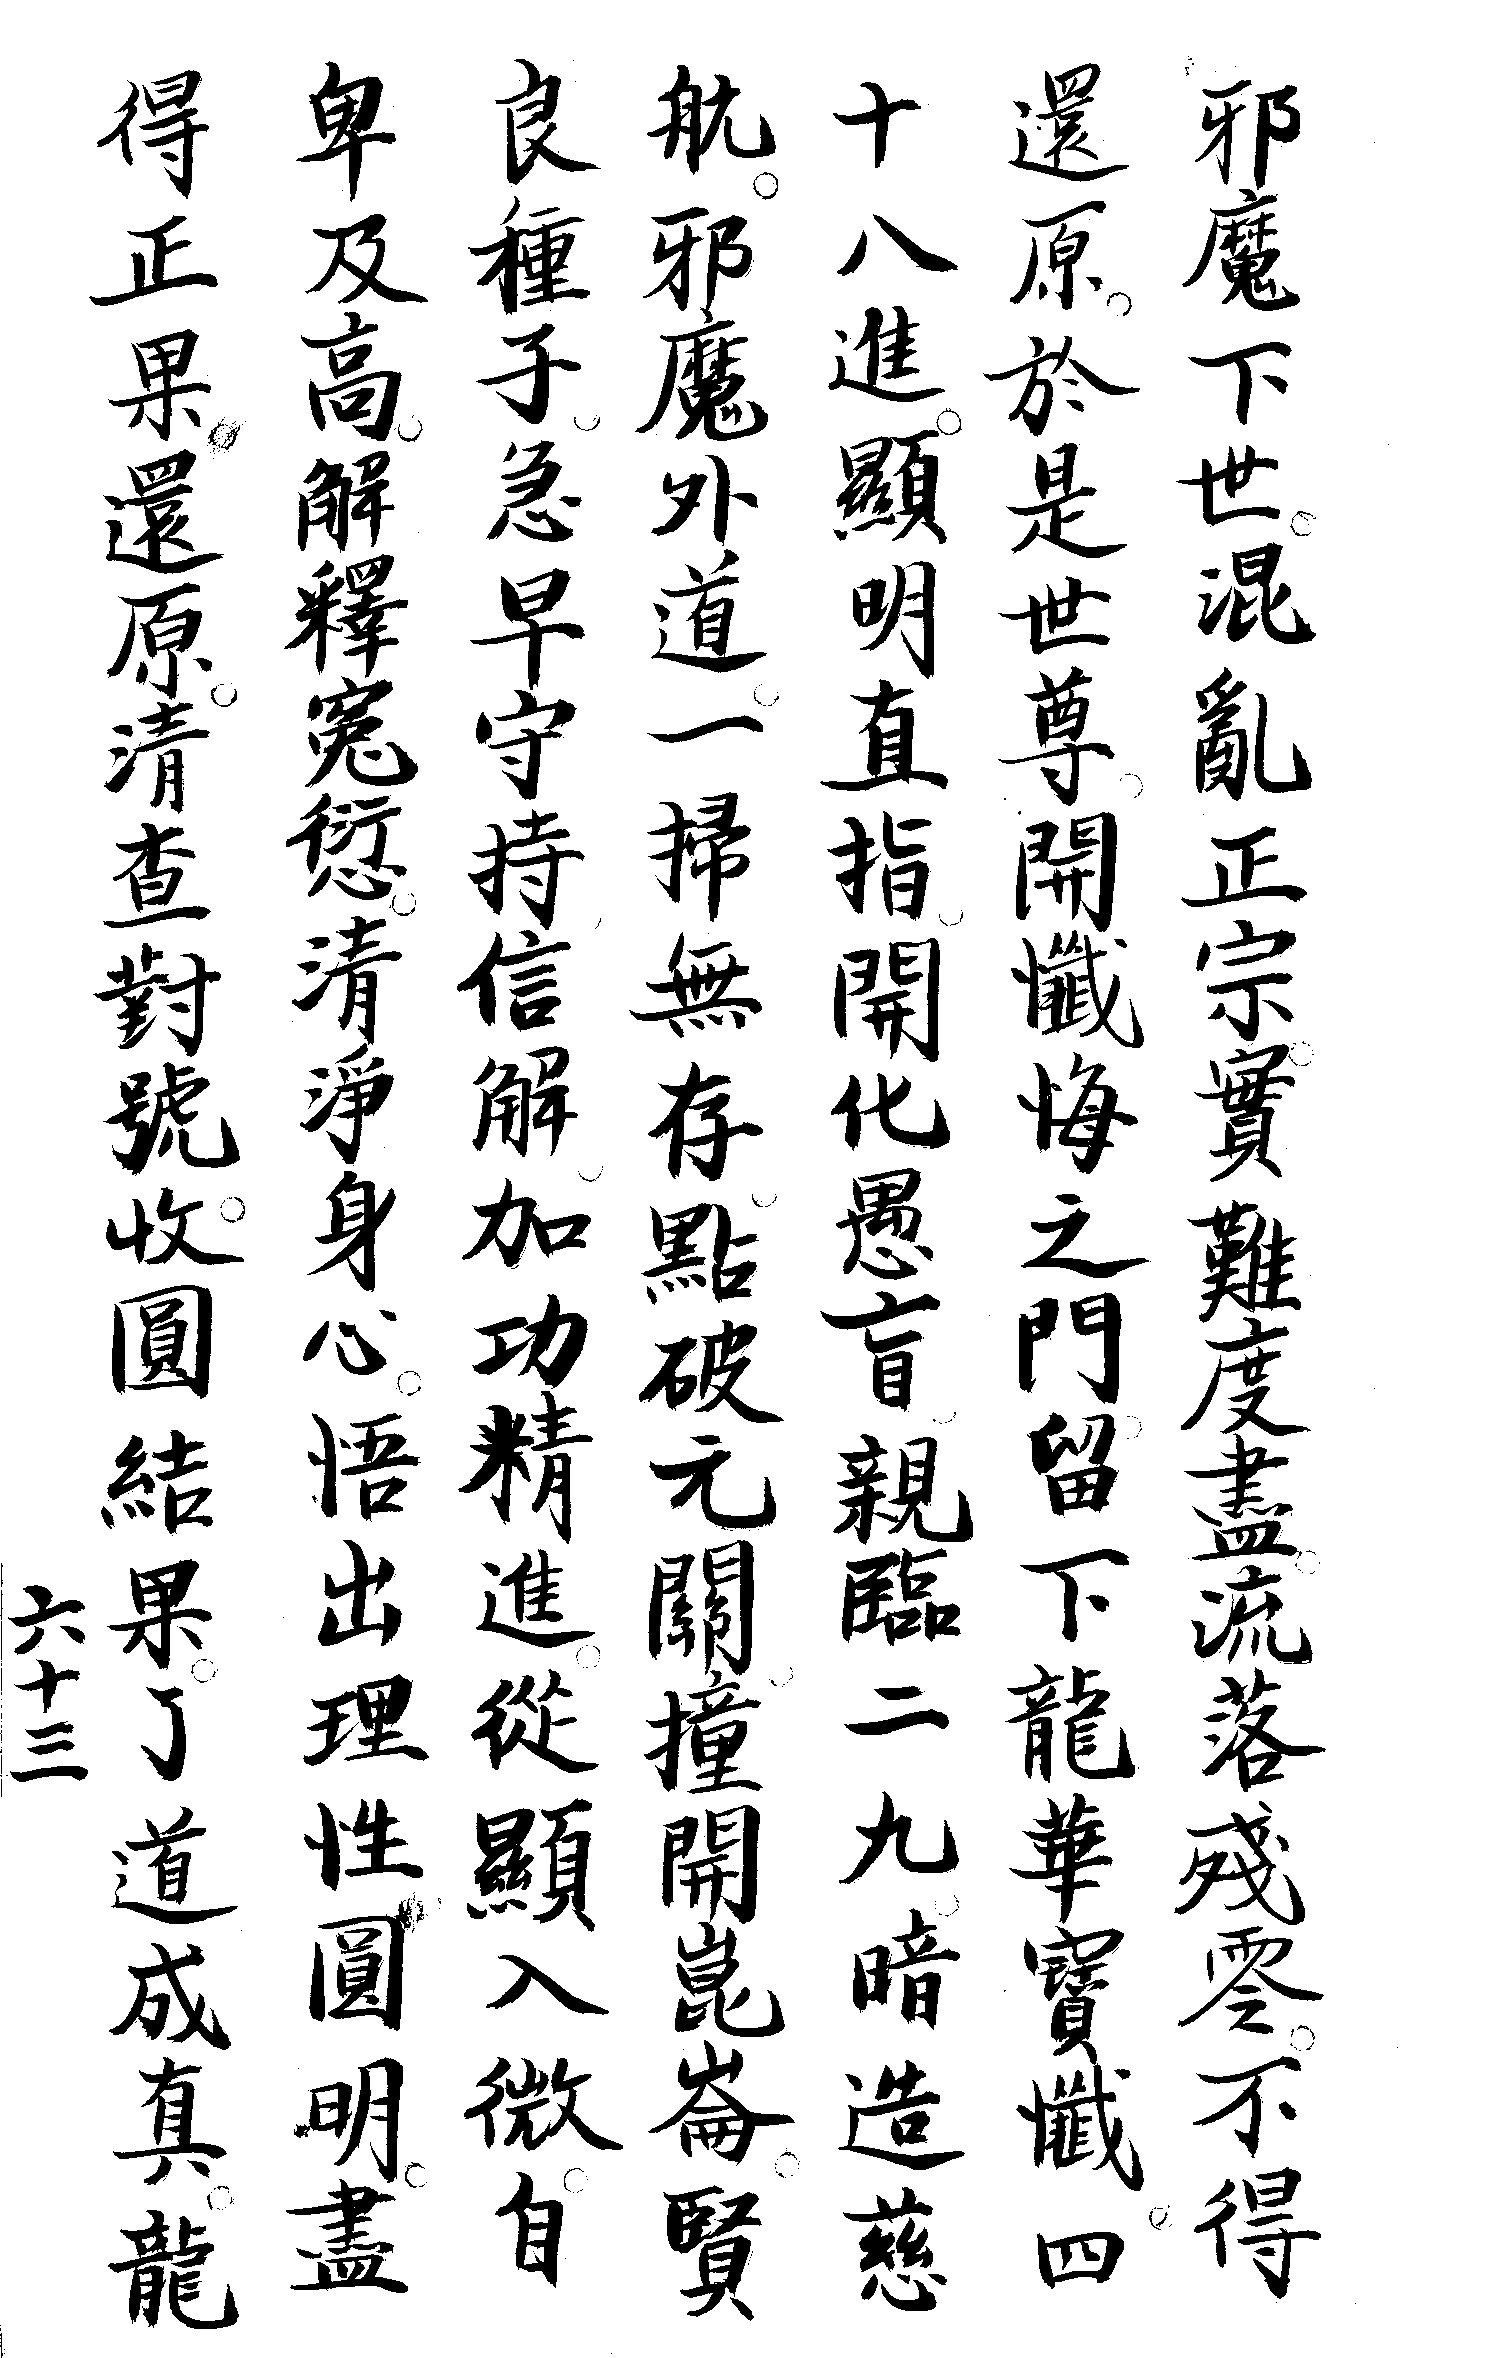 邪魔下世。混亂正宗。實難度盡。流落殘零。不得
還原。於是世尊。開懺悔之門。留下龍華寶懺。四
十八進。顯明直指。開化愚盲。親臨二九。暗造慈
航。邪魔外道。一掃無存。點破元關。撞開崑崙。賢
良種子。急早守持。信解。加功精進。從顯入微。自
卑及高。解釋冤愆。清淨身心。悟出理性。圓明。盡
得正果。還原。清查對號。收圓結果。了道成真。龍
六十三